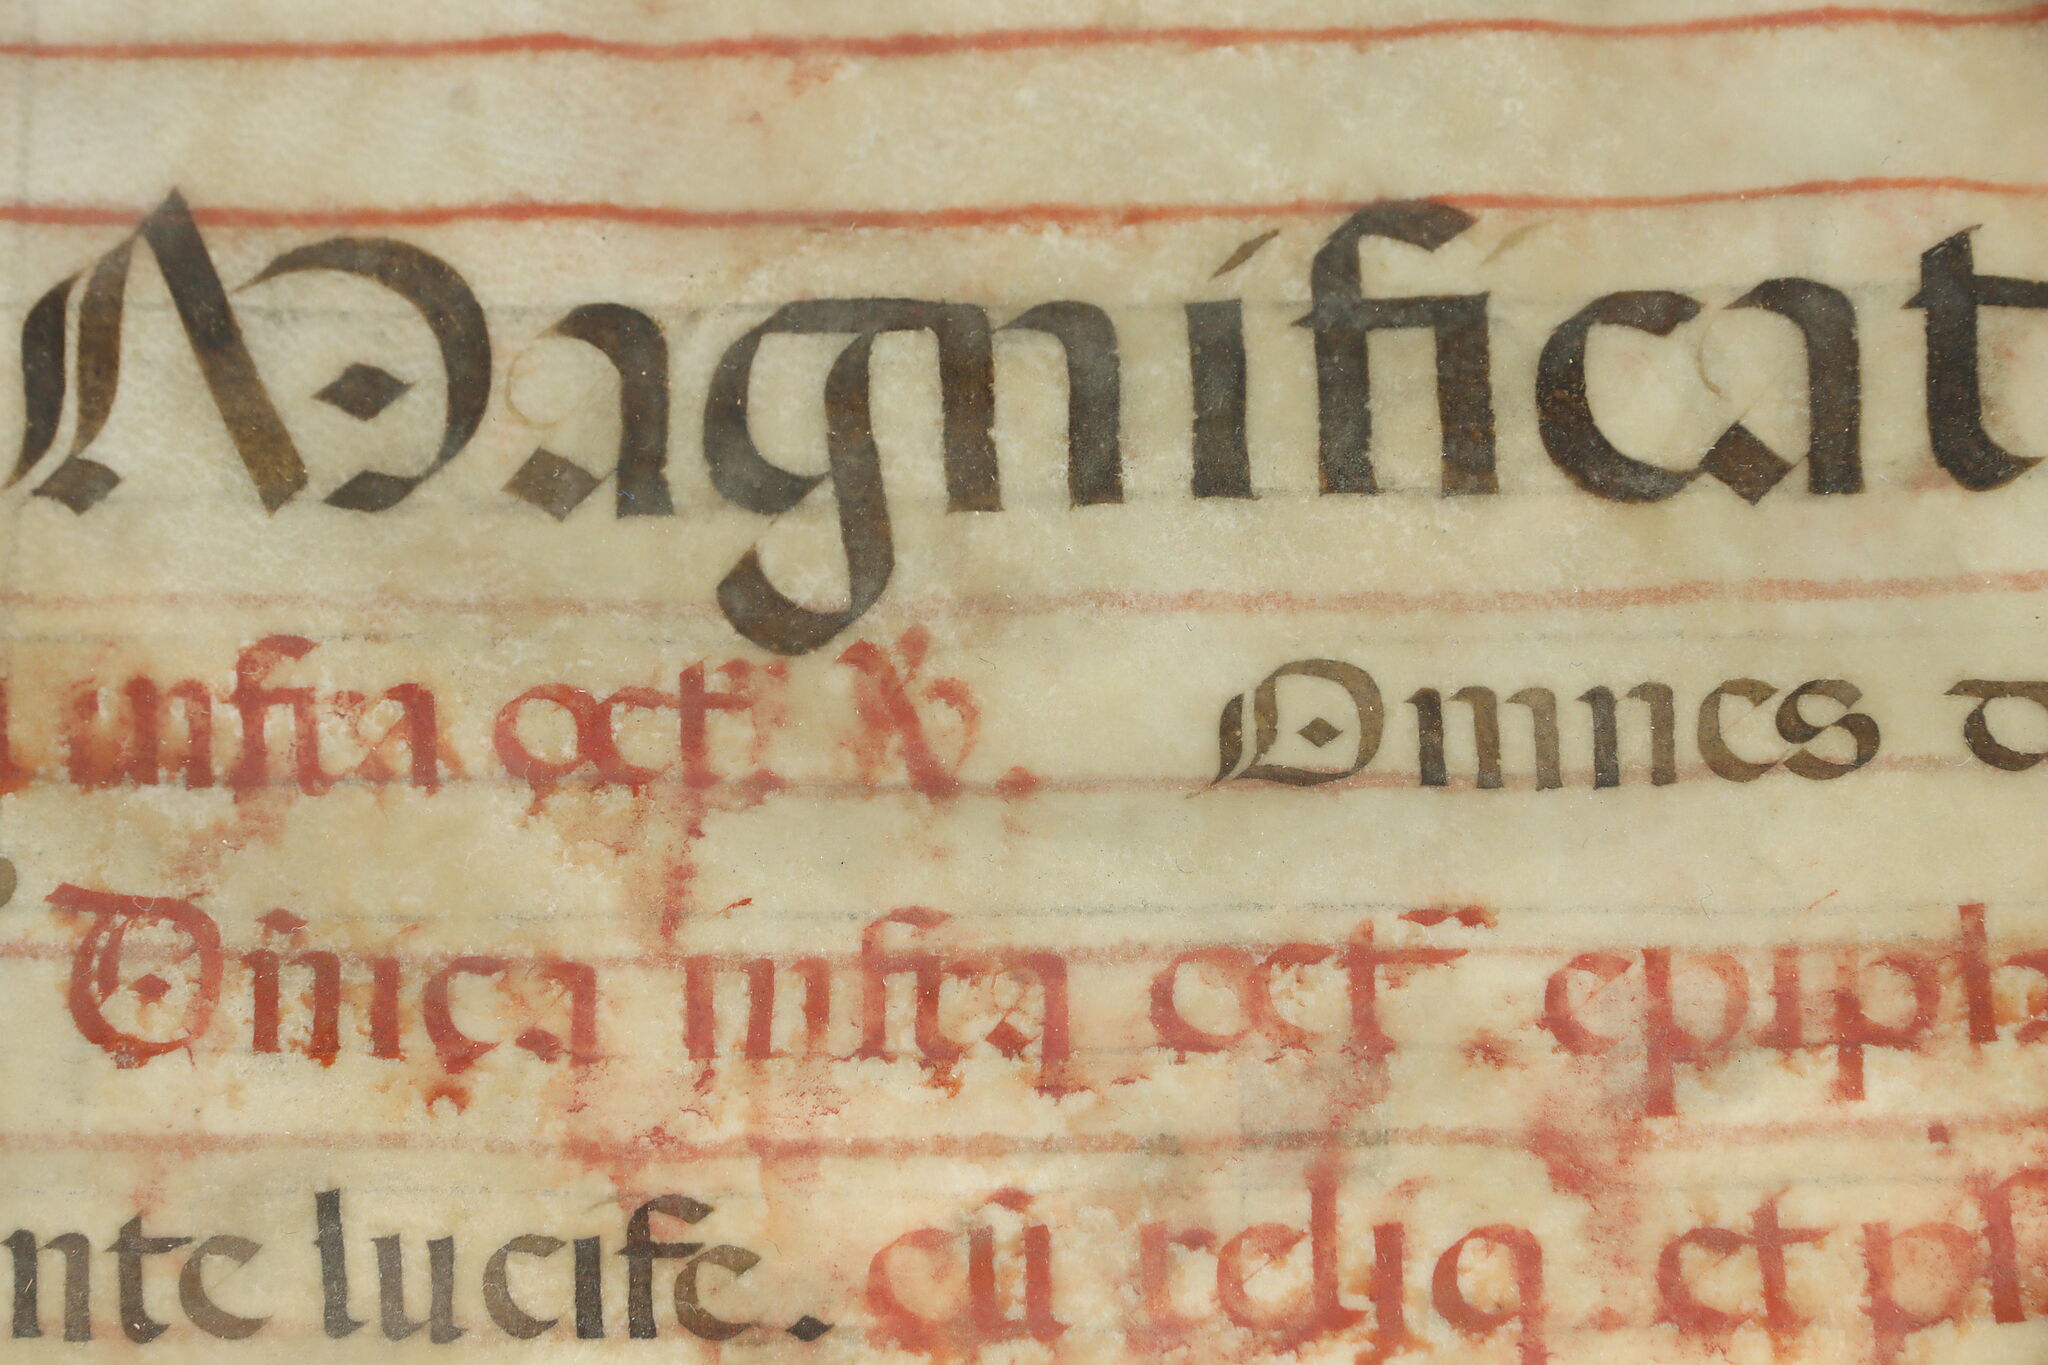 Magníficat
infra oct̄. V. Omnes
Dn̄ica infra oct̄. epiph
nte lucife. cū reliq. et